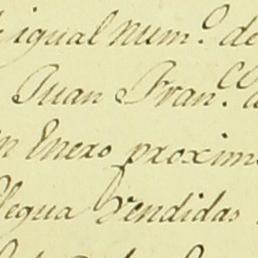 igual num.º de
Juan Fran.co
en Enero proxim
legua vendidas